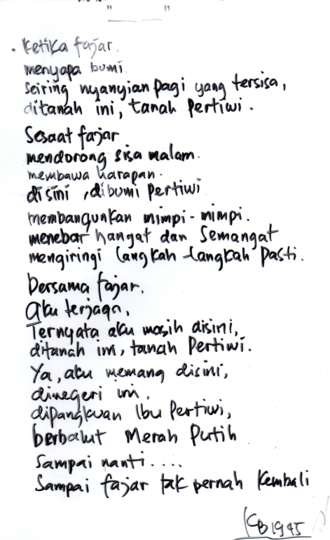 " "
Ketika fajar.
menyapa bumi.
Seiring nyanyian pagi yang tersisa,
ditanah ini, tanah Pertiwi.
Sesaat fajar
mendorong sisa malam.
membawa harapan.
disini, dibumi Pertiwi
membangunkan mimpi-mimpi.
menebar hangat dan Semangat
mengiringi langkah-langkah Pasti.
Bersama fajar,
Aku terjaga,
Ternyata aku masih disini,
ditanah ini, tanah Pertiwi.
Ya, aku memang disini,
dinegeri ini.
dipangkuan Ibu Pertiwi,
berbalut Merah Putih
Sampai nanti....
Sampai fajar tak pernah Kembali
1945